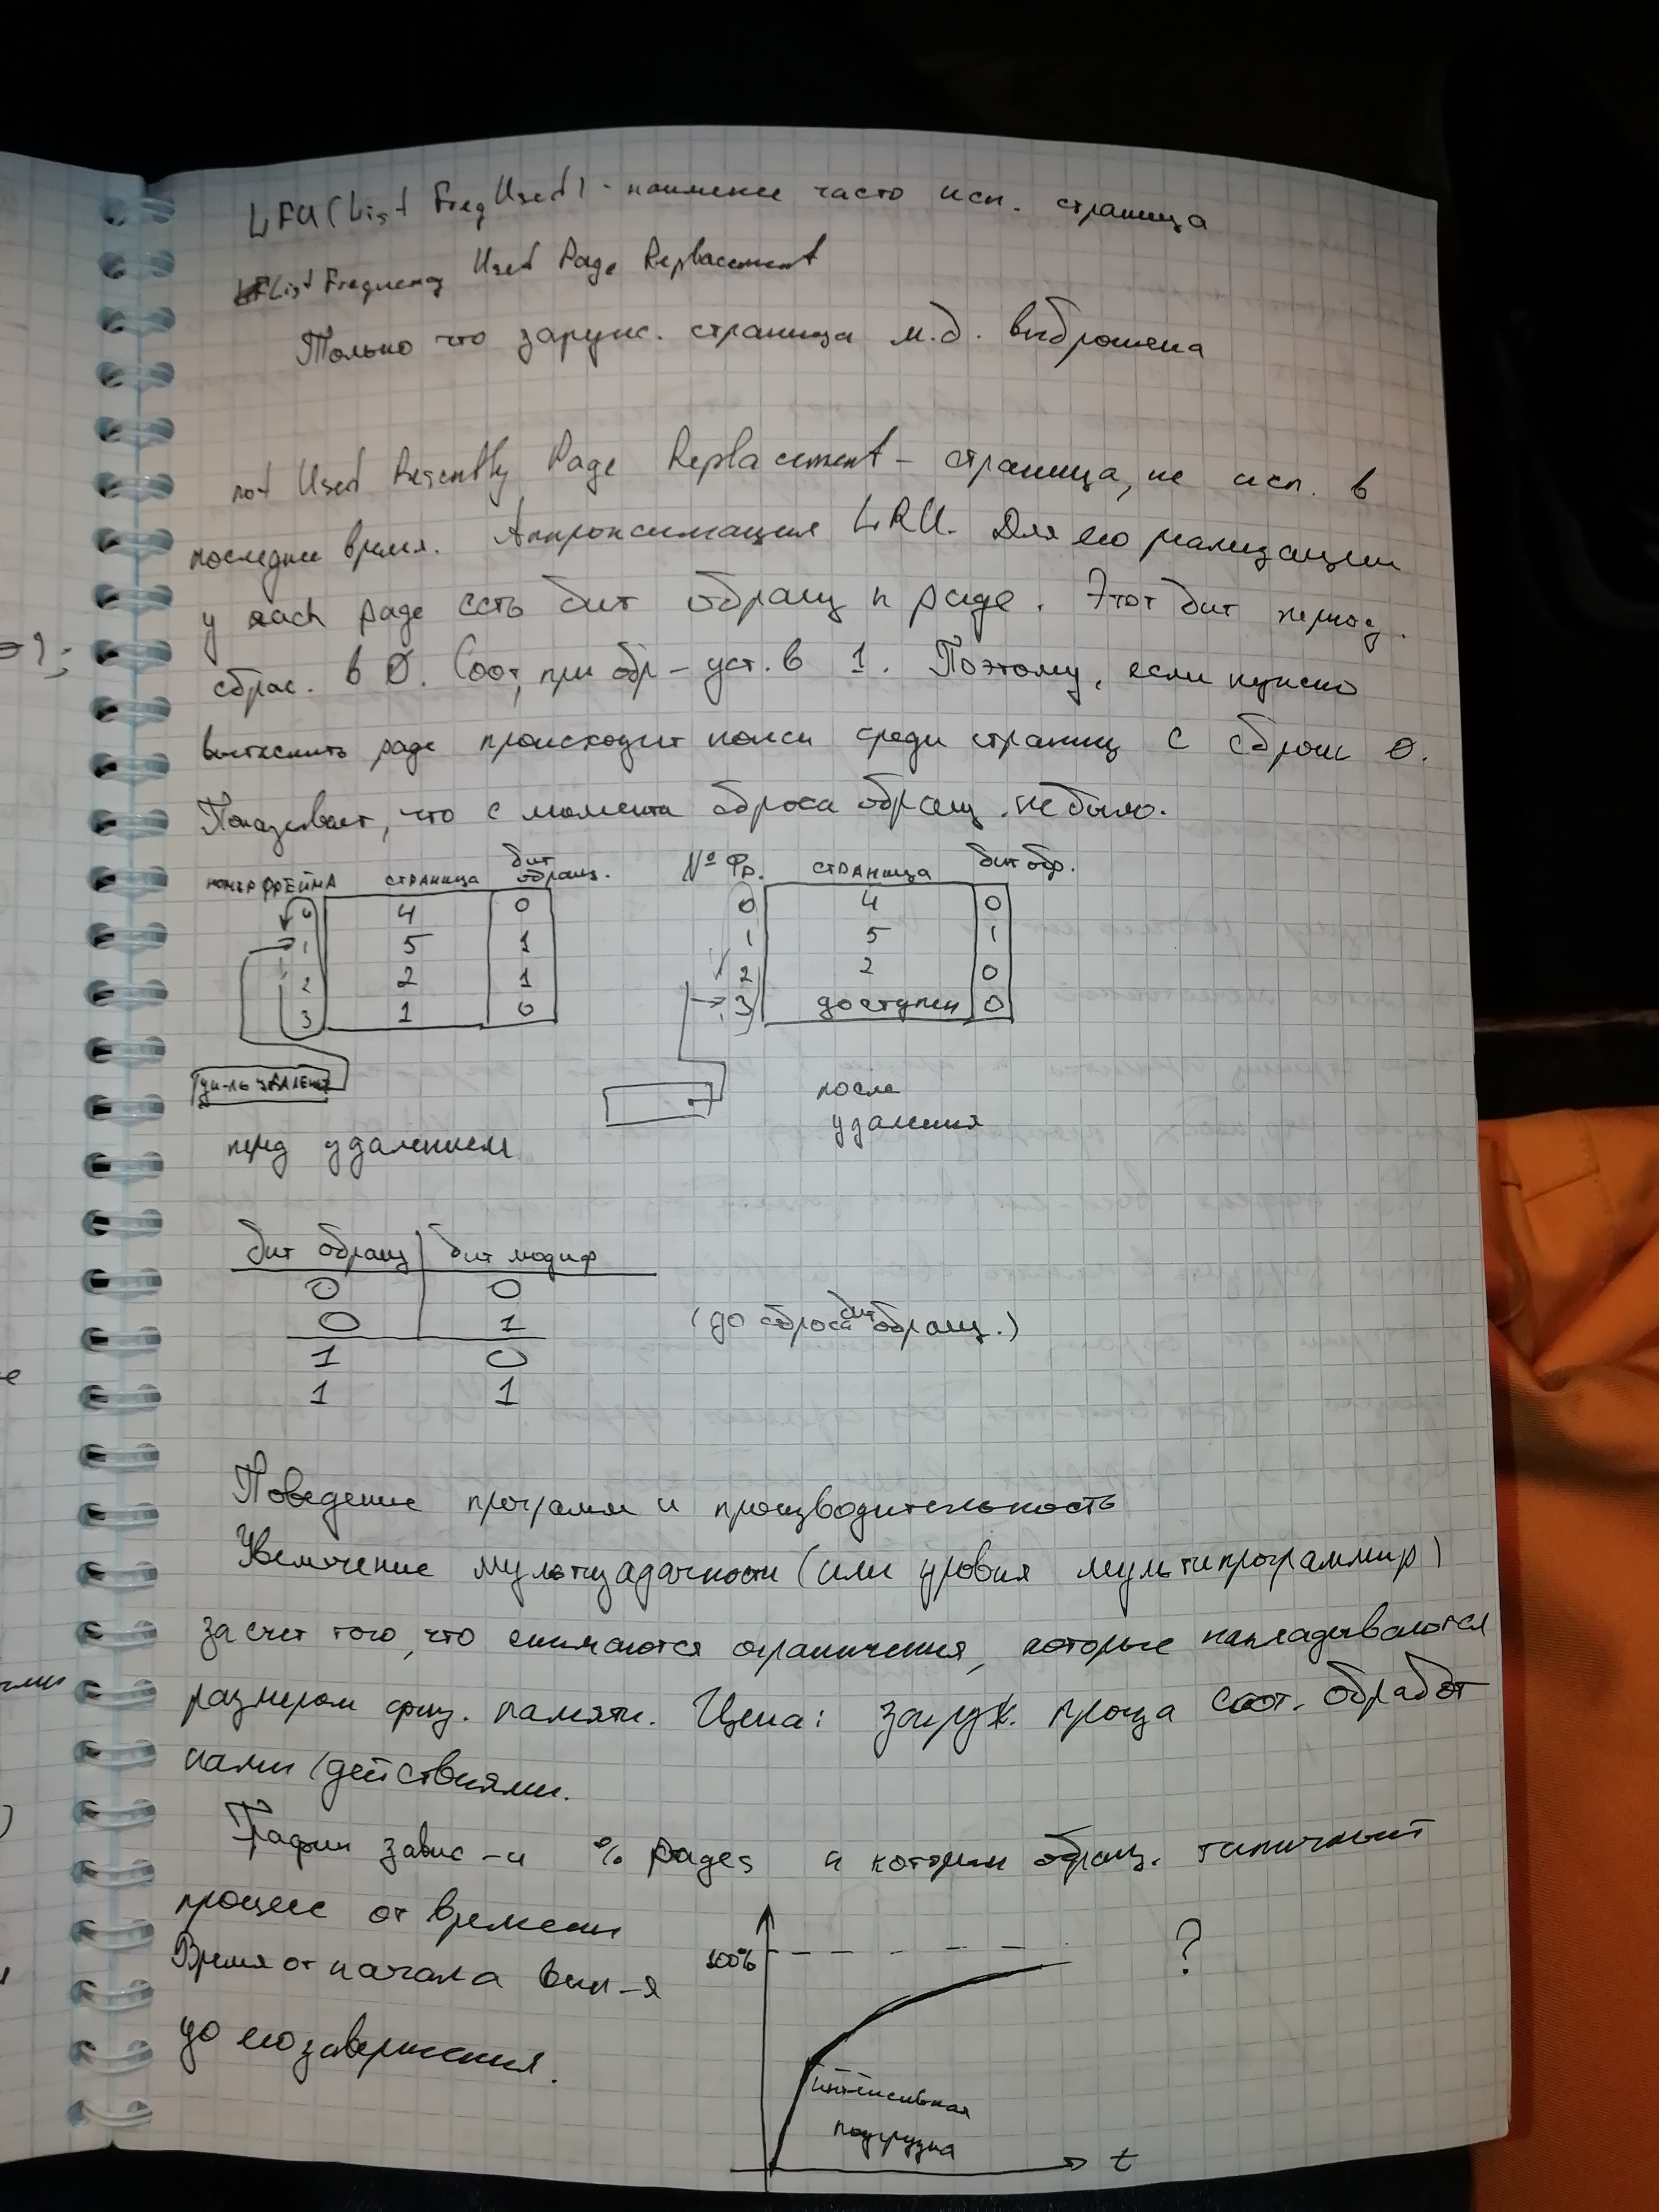 LFU (List Freq Used) - наименее часто исп. страница
List Frequency Used Page Replacement
Только что загруж. страница м.д. выброшена
not Used Resently Page Replacement - страница, не исп. в
последнее время. Аппроксимация LRU. Для его реализации
у each page есть бит обращ к page. Этот бит период.
сбрас. в 0. Соот, при обр - уст. в 1. Поэтому, если нужно
вытеснить page происходит поиск среди страниц с сброш 0.
Показывает, что с момента сброса обращ. не было.
номер фрейма страница бит обращ.
0 4 0
1 5 1
2 2 1
3 1 0
перед удалением
№ Фр. страница бит обр.
0 4 0
1 5 1
2 2 0
3 доступен 0
после
удаления
бит обращ бит модиф
0 0
0 1 (до сброса бит обращ.)
1 0
1 1
Поведение программ и производительность
Увеличение мультизадачности (или уровня мультипрограммир)
за счет того, что снимаются ограничения, которые накладываются
размером физ. памяти. Цена: загруж. проца соот. обработ
ками/действиями.
График завис-и % pages к которым обращ. типичный
процесс от времени
Время от начала вып-я
до его завершения.
100%
?
интенсивная
подгрузка
t